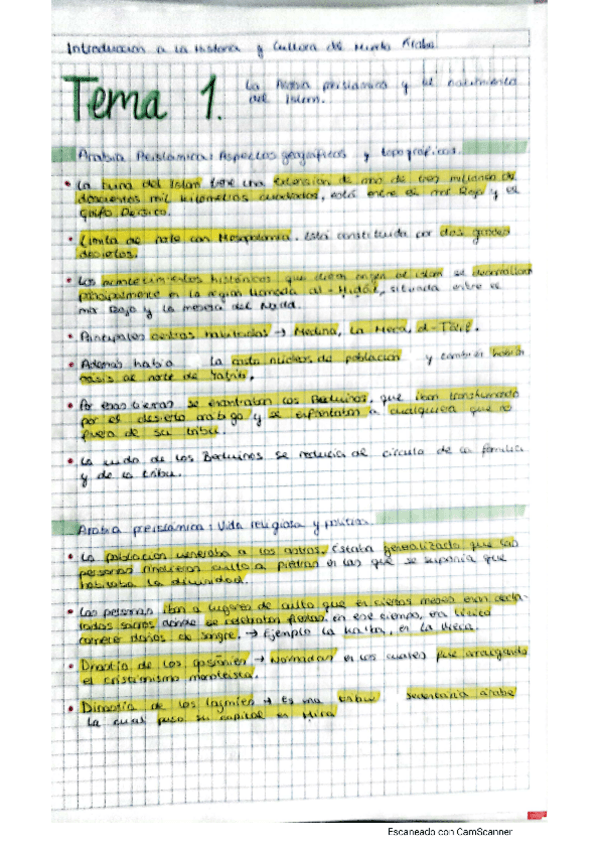 Introducción a la Historia y Cultura del Mundo Árabe
Tema 1.
La Arabia preislámica y el nacimiento
del Islam.
Arabia Preislámica: Aspectos geográficos y topográficos.
• La cuna del Islam tiene una extensión de uno de tres millones de
doscientos mil kilómetros cuadrados, está entre el mar Rojo y el
Golfo Pérsico.
• Limita al norte con Mesopotamia. Está constituida por dos grandes
desiertos.
• Los acontecimientos históricos que dieron origen al islam se desarrollan
principalmente en la región llamada al-Hiŷāz, situada entre el
mar Rojo y la meseta del Naŷd.
• Principales centros habitados → Medina, La Meca, al-Tā'if.
• Además había la costa núcleos de población y también había
oasis al norte de
• Por esas tierras se encontraban los Beduinos, que iban transhumando
por el desierto arábigo y se enfrentaban a cualquiera que no
fuera de su tribu.
• La vida de los Beduinos se reducía al círculo de la familia
y de la tribu.
Arabia preislámica: Vida religiosa y política.
• La población veneraba a los astros. Estaba generalizado que las
personas rindieran culto a piedras en las que se suponía que
habitaba la divinidad.
• Las personas iban a lugares de culto que en ciertos meses eran decla-
rados sacros donde se celebraban fiestas. en ese tiempo, era ilícito
cometer delitos de sangre. → Ejemplo la Ka'ba, en La Meca.
• Dinastía de los gasaníes → Nómadas en los cuales fue arraigando
el cristianismo monofisita.
• Dinastía de los lajmíes → Es una tribu sedentaria árabe
la cual puso su capital en Hira
Escaneado con CamScanner